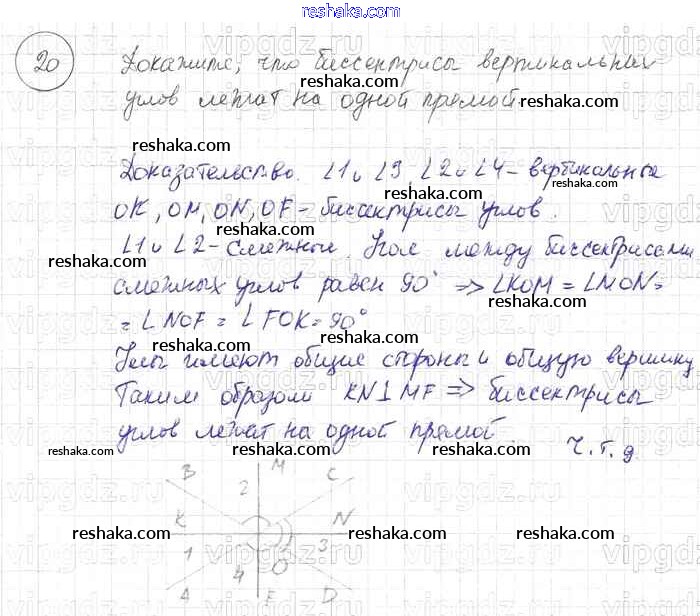 20
Докажите, что биссектрисы вертикальных
углов лежат на одной прямой.
Доказательство. ∠1 и ∠3, ∠2 и ∠4 - вертикальные
OK, OM, ON, OF - биссектрисы углов.
∠1 и ∠2 - смежные. Угол между биссектрисами
смежных углов равен 90° => ∠KOM = ∠MON =
= ∠NOF = ∠FOK = 90°
Углы имеют общие стороны и общую вершину
Таким образом KN⊥MF => биссектрисы
углов лежат на одной прямой.
ч.т.д.
B M C
2
K N
1 3
4 O
A F D
reshaka.com
vipgdz.ru